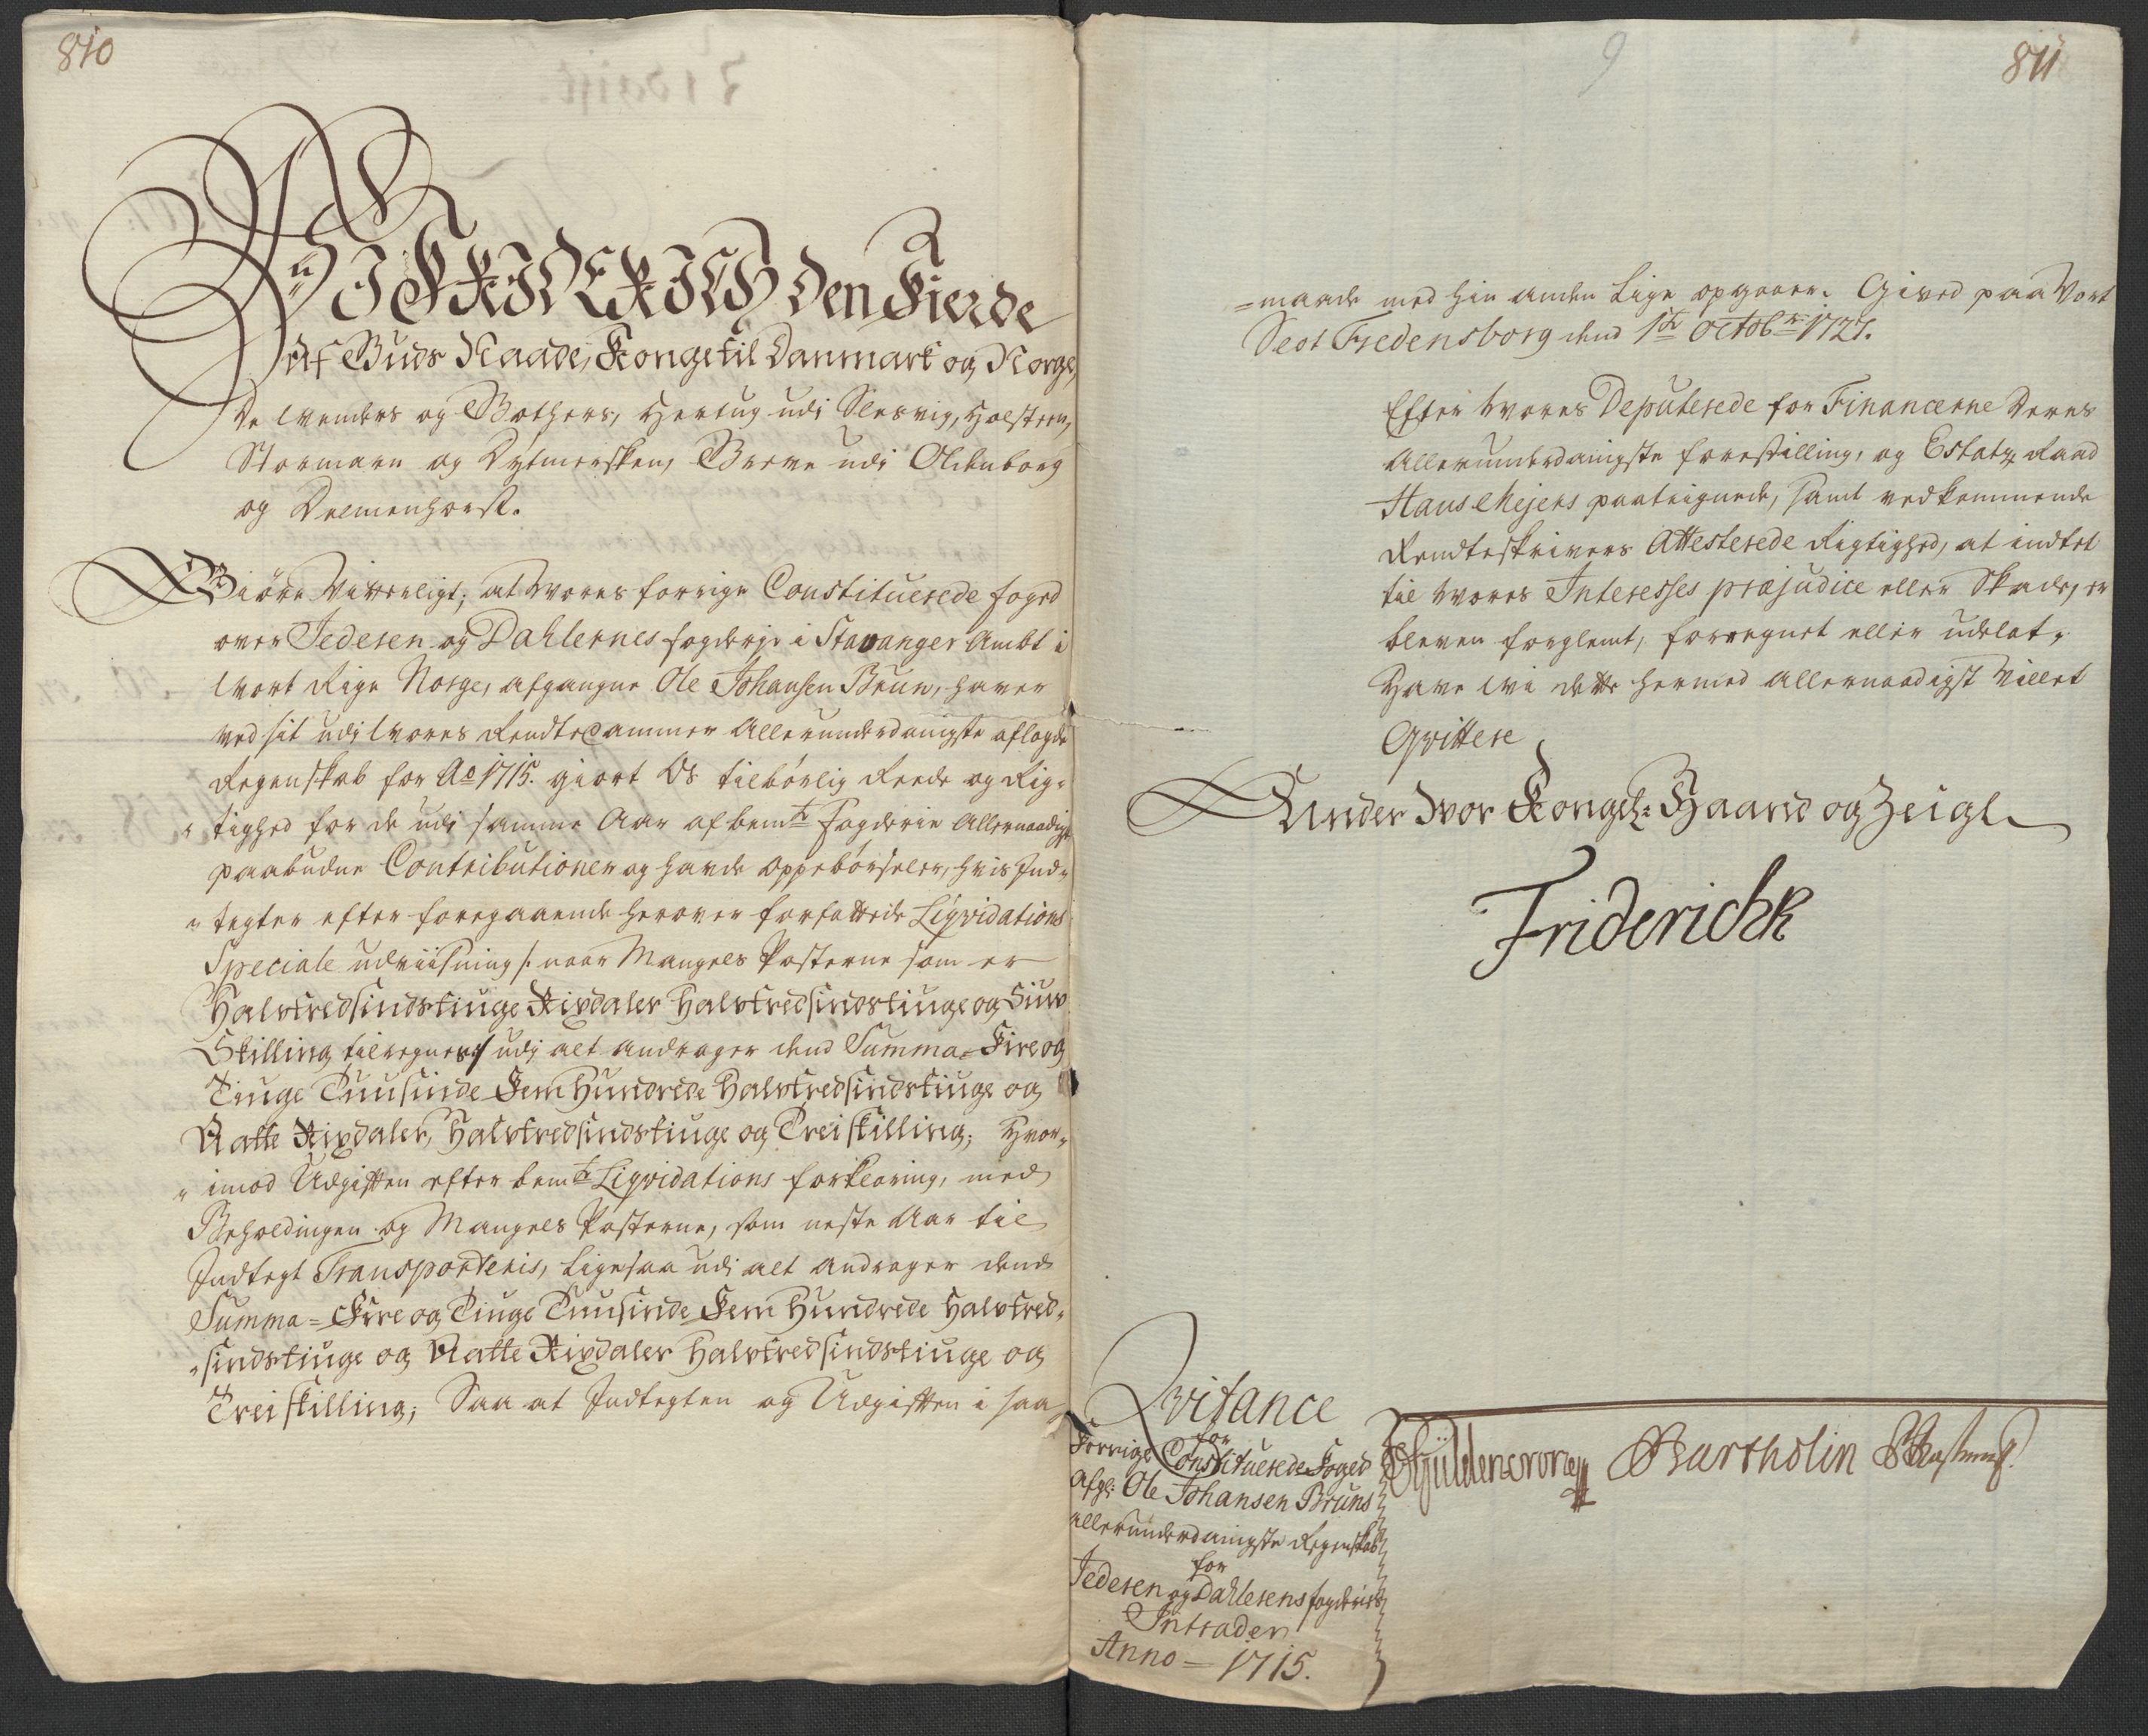 810
Wi FRIDERICH Den Fierde
Af Guds Naade, Konge til Danmark og Norge,
De Wenders og Gothers, Hertug udi Slesvig, Holsteen,
Stormarn og Dytmersken, Greve udi Oldenborg
og Delmenhorst.
Giöre Vitterligt; at Vores forrige Constituerede foged
over Jederen og Dahlernes fogderje i Stavanger Ambt i
Wort Rige Norge, afgangne Ole Johansen Brun, haver
ved sit udi Wores Rendte Cammer Allerunderdanigste aflagde
Regenskab for Ao 1715. giort Os tilbörlig Reede og Rig-
„tighed for de udi samme Aar af bemte Fogderie Allernaadigst
paabudne Contributioner og havde oppebörseler, hvis Ind-
„tegter efter foregaaende herover forfattede Liqvidations
Speciale udviisning /: naar Mangels Posterne som er
Halvtredsindstiuge Rixdaler Halvtredsindstiuge og Siuv
Skilling tilregnes :/ udj alt andrager dend Summa = Fire og
Tiuge Tuusinde Fem Hundrede Halvtredsindstiuge og
Aatte Rixdaler, Halvtredsindstiuge og Trei skilling; Hvor-
„imod Udgiften efter bemte Liqvidations forklaring, med
Beholdingen og Mangels Posterne, som neste Aar til
Indtegt Transporteris, ligesaa udi alt andrager dend
Summa = Fire og Tiuge Tuusinde Fem Hundrede Halvtred-
„sindstiuge og Aatte Rixdaler Halvtredsindstiuge og
Trei skilling; Saa at Indtegten og Udgiften i saa
9
811
=maade med hin anden Lige opgaaer. Gived paa Vort
Slot Fredensborg dend 1te Octobr 1727.
Efter Wores Deputerede for Financerne Deres
Allerunderdanigste forestilling, og Estatz Raad
Hans Mejers paateignede, samt vedkommende
Rendteskrivers Attesterede Rigtighed, at indtet
til Wores Interesses præjudice eller Skade, er
bleven forglemt, forregnet eller udelat,
Have Wi dette hermed Allernaadigst Villet
Qvittere
Under Vor Kongel: Haand og Zeigl
Friderich R
Qvitance
for
Forrige Constituerede Foged
Afg: Ole Johansen Bruns
allerunderdanigste Regenskab
for
Jederen og Dahlerens fogderies
Intrader
Anno = 1715.
Gÿldencrone Bartholin